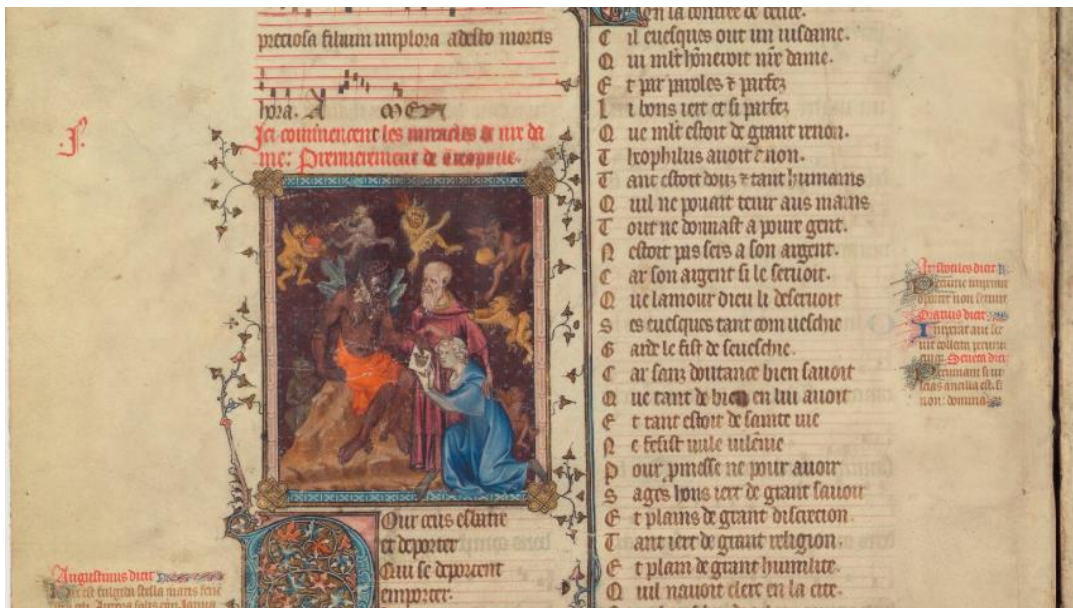 preciosa filium implora adesto mortis
hora. A MEN
J.
Ici commencent les miracles de nre da
me: Premierement de
Our ceus esbatre
et deporter
Qui se deportent
emporter.
Augustinus dicit
on la contree de
C il euesques out un uisdame.
Q ui mlt honeroit nre dame.
E t par paroles & par fez
L i bons iert et si parfez
Q ue mlt estoit de grant renon.
T heophilus auoit e non.
T ant estoit douz & tant humains
Q uil ne pouait tenir aus mains
T out ne donnast a poure gent.
N estoit pas sers a son argent.
C ar son argent si le seruoit.
Q ue lamour dieu li deseruoit
S es euesques tant com ueschie
G arde le fist de seueschie.
C ar sanz doutance bien sauoit
Q ue tant de bien en lui auoit
E t tant estoit de sainte uie
N e feist nule uilenie
P our pmesse ne pour auoir
S ages hons iert de grant sauoir
E t plains de grant discrecion.
T ant iert de grant religion.
E t plain de grant humilite.
Q uil nauoit clerc en la cite.
dicit
dicit
Seneca dicit
ancilla est. si
non: domina